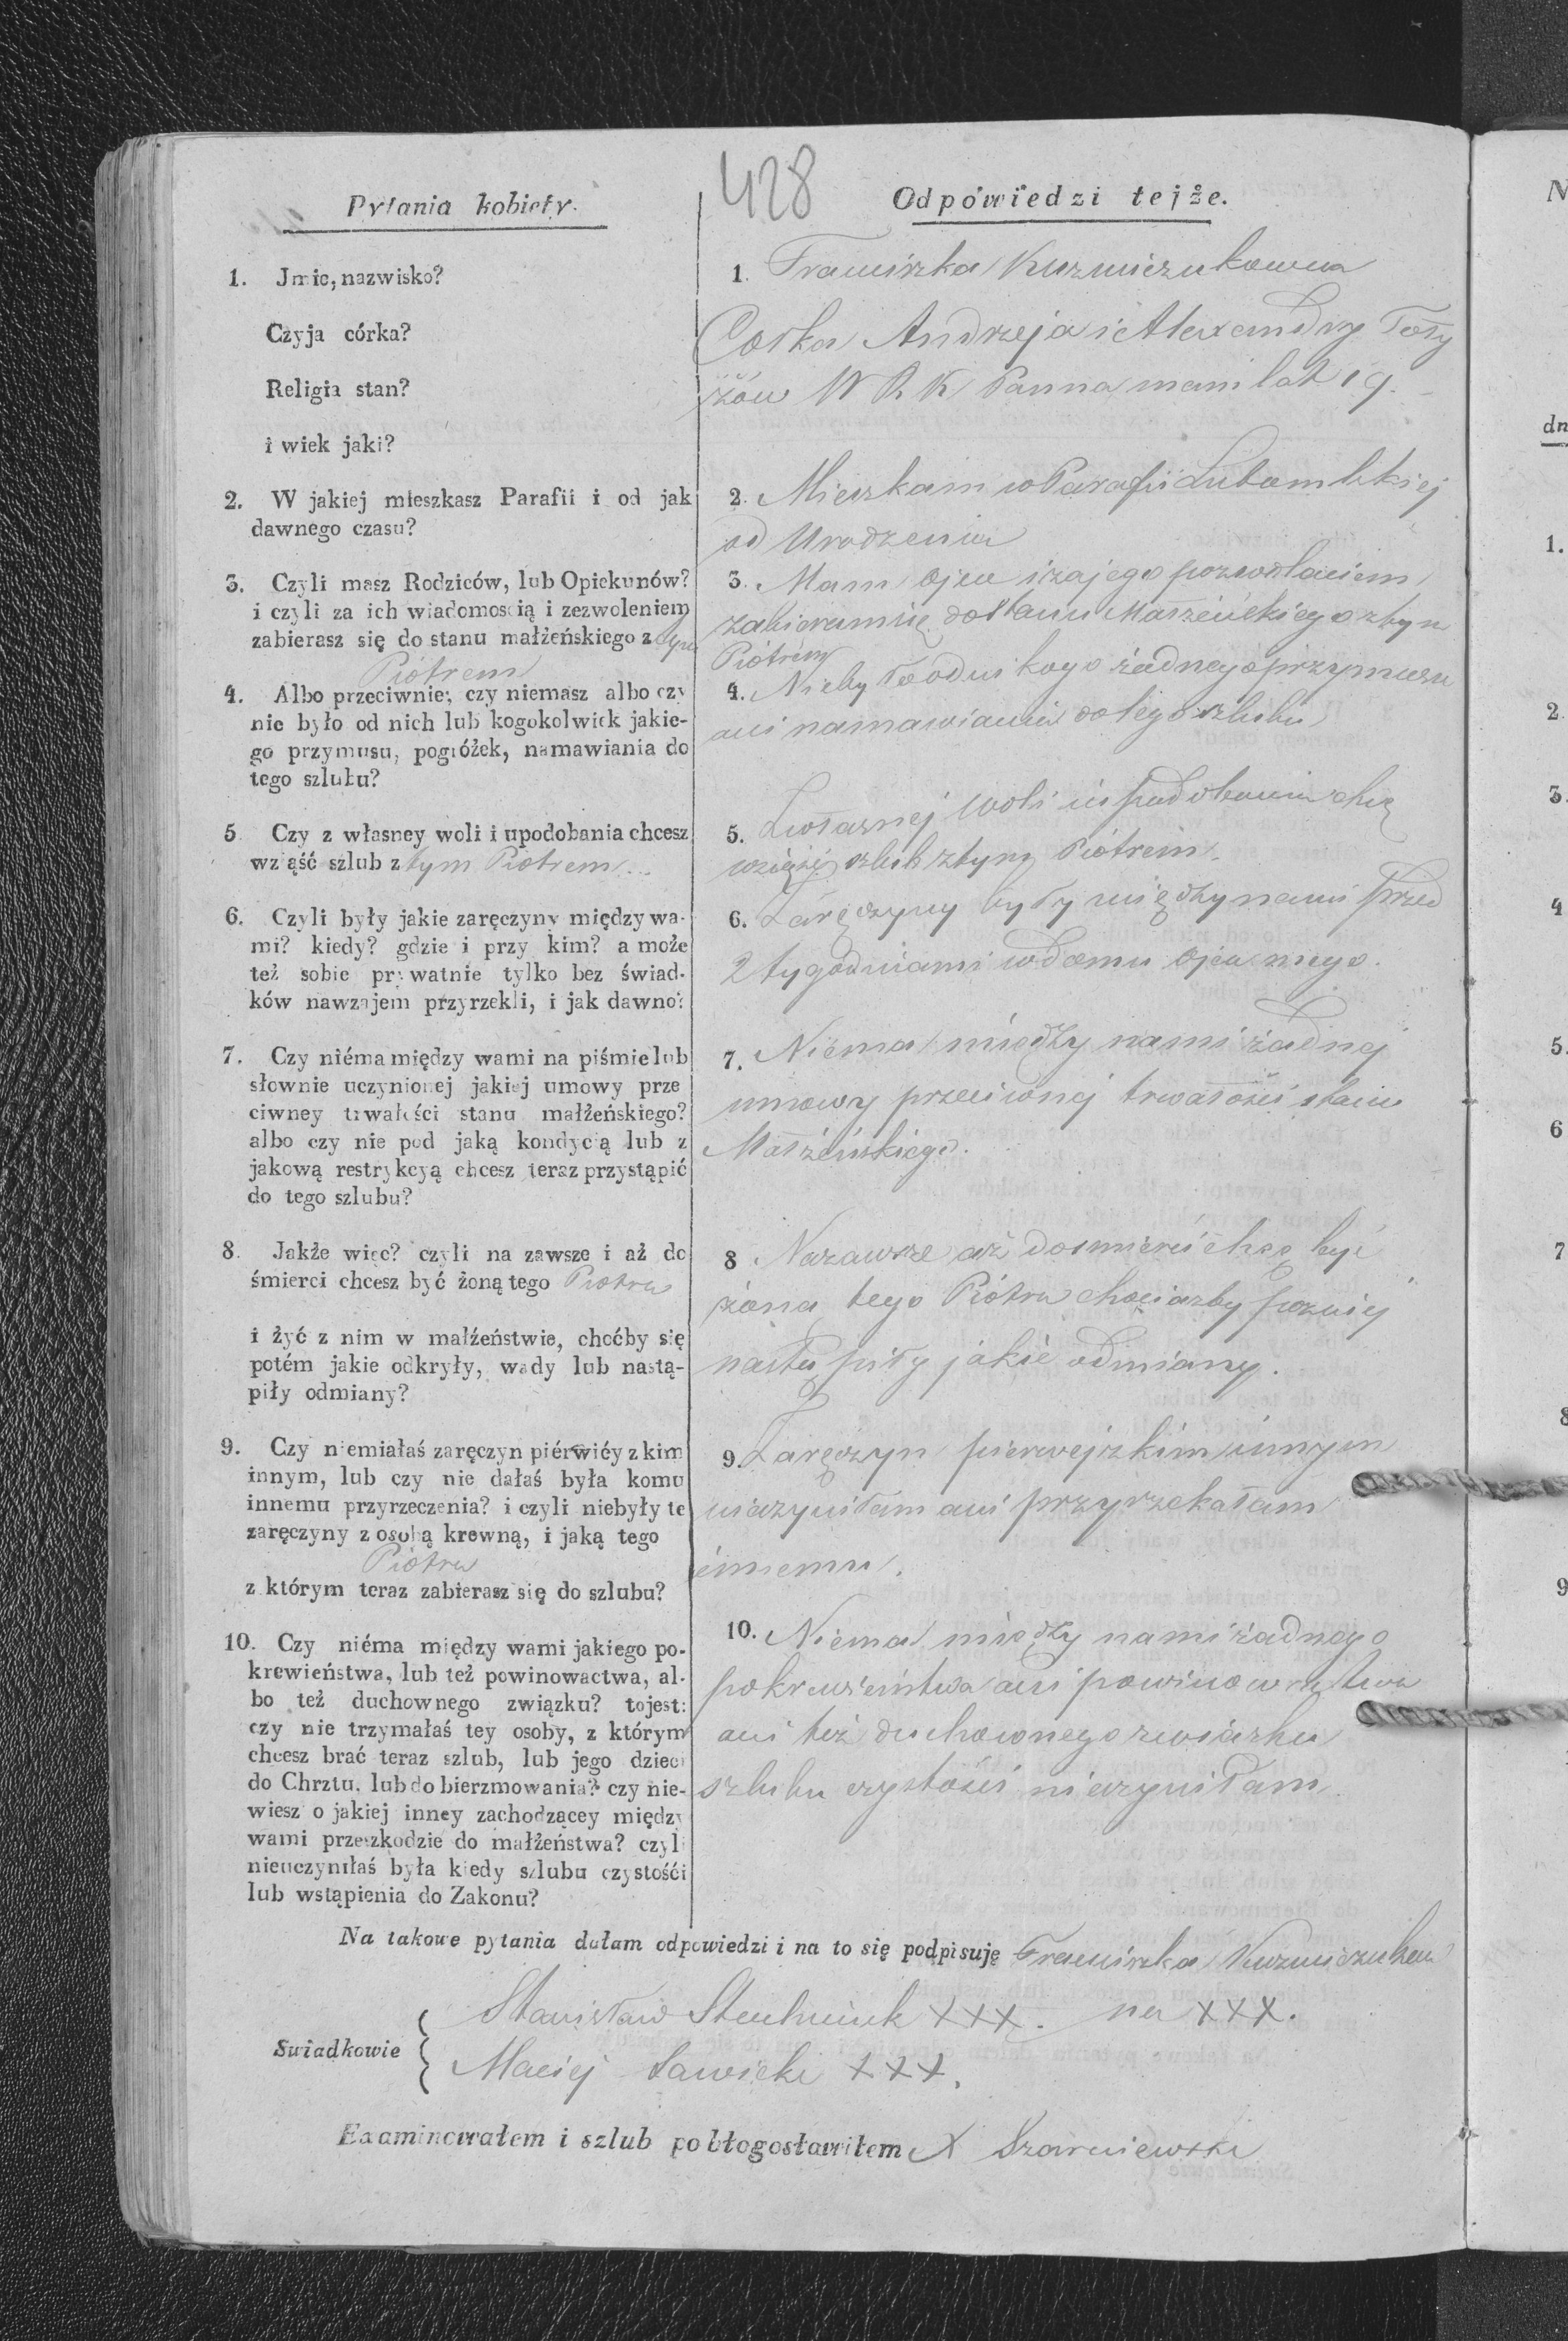 428
Pytania kobiety.
1. Jmie, nazwisko?
Czyja córka?
Religia stan?
i wiek jaki?
2. W jakiej mieszkasz Parafii i od jak
dawnego czasu?
3. Czyli masz Rodziców, lub Opiekunów?
i czyli za ich wiadomoscią i zezwoleniem
zabierasz się do stanu małżeńskiego z tym
Piotrem
4. Albo przeciwnie; czy niemasz albo czy
nie było od nich lub kogokolwiek jakie-
go przymusu, pogróżek, namawiania do
tego szlubu?
5 Czy z własney woli i upodobania chcesz
wziąść szlub z tym Piotrem
6. Czyli były jakie zaręczyny między wa-
mi? kiedy? gdzie i przy kim? a może
też sobie prywatnie tylko bez świad-
ków nawzajem przyrzekli, i jak dawno?
7. Czy niéma między wami na piśmie lub
słownie uczynionej jakiej umowy prze
ciwney trwałości stanu małżeńskiego?
albo czy nie pod jaką kondycią lub z
jakową restrykcyą chcesz teraz przystąpić
do tego szlubu?
8. Jakże więc? czyli na zawsze i aż do
śmierci chcesz być żoną tego Piotra
i żyć z nim w małżeństwie, choćby się
potém jakie odkryły, wady lub nastą-
piły odmiany?
9. Czy niemiałaś zaręczyn piérwiéy z kim
innym, lub czy nie dałaś była komu
innemu przyrzeczenia? i czyli niebyły te
zaręczyny z osobą krewną, i jaką tego
Piotra
z którym teraz zabierasz się do szlubu?
10. Czy niéma między wami jakiego po-
krewieństwa, lub też powinowactwa, al-
bo też duchownego związku? tojest:
czy nie trzymałaś tey osoby, z którym
chcesz brać teraz szlub, lub jego dzieci
do Chrztu. lub do bierzmowania? czy nie-
wiesz o jakiej inney zachodzącey między
wami przeszkodzie do małżeństwa? czyli
nieuczyniłaś była kiedy szlubu czystośći
lub wstąpienia do Zakonu?
Odpówiedzi tejże.
1. Franciszka Kuzmiczukowna
Corka Andrzeja i Alexandry
W R K Panna mam lat 19.
2. Mieszkam w Parafii Lubomlskiej
od Urodzenia
3. Mam ojca i za jego pozwolaniem
zabieram się do stanu Małżeńskiego z tym
Piotrem
4. Nieby ło od nikogo żadnego przymusu
ani namawiania do tego szlubu
5. Z własnej woli i upodobania chcę
wziąść szlub z tym Piotrem.
6. Zaręczyny były między nami przed
2 tygodniami w domu ojca mego.
7. Niema między nami żadnej
umowy przeciwnej trwałości stanu
Małżeńskiego.
8 Nazawsze aż do smierci chcę być
żoną tego Piotra chociazby pozniej
nastąpiły jakie odmiany.
9. Zaręczyn pierwej z kim innym
nieczyniłam ani przyrzekałam
innemu.
10. Niema między nami żadnego
pokrewieństwa ani powinowactwa
ani też duchownego zwiazku
szlubu czystości nieczyniłam
Na takowe pytania dałam odpowiedzi i na to się podpisuję Franciszka Kuzmiczukow
na XXX.
Swiadkowie
Stanisław XXX.
Maciej Sawicki XXX.
Examinowałem i szlub pobłogosławiłem X
N
dn
1.
2
3.
4
5.
6
7
8
9